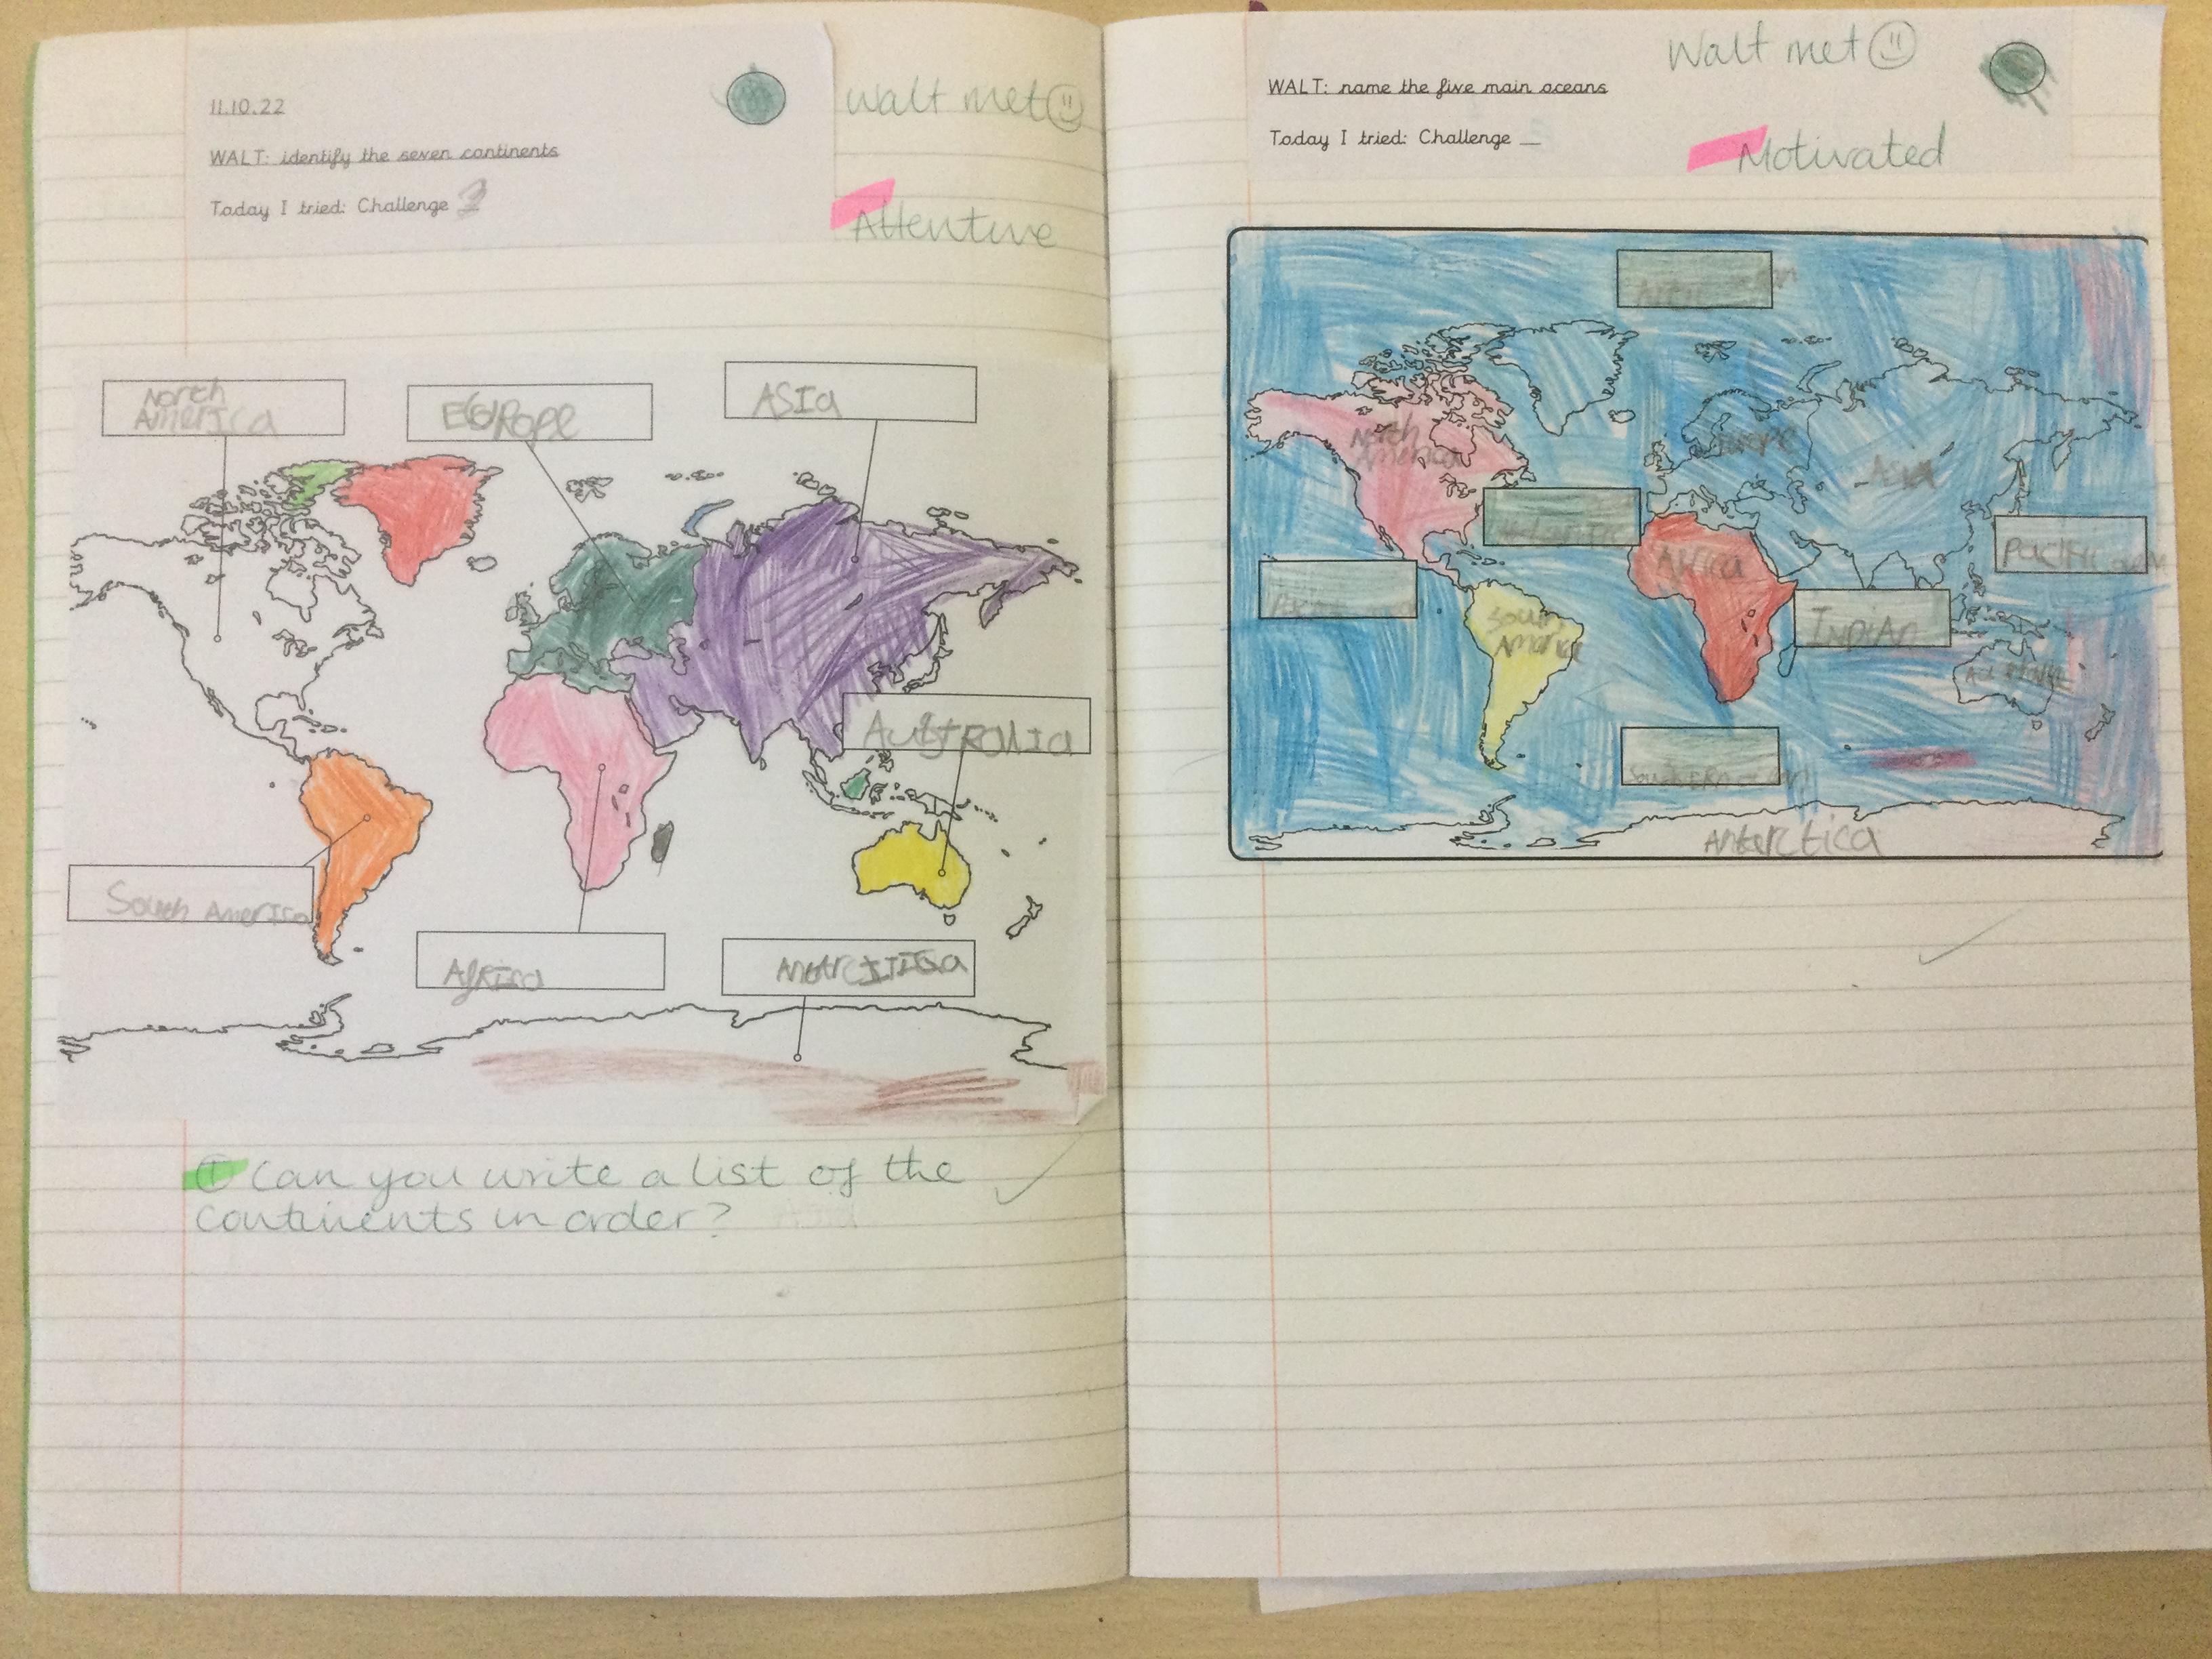 11.10.22
WALT: identify the seven continents
Today I tried: Challenge
Walt met
Attentive
North
America
EUROPE
ASIa
AustRalIa
South AmerIca
AfRIca
AntArctica
Can you write a list of the
continents in order?
WALT: name the five main oceans
Today I tried: Challenge _
Walt met
Motivated
North
America
Europe
ASIA
Africa
South
America
PACIFIC
INDIAN
Antarctica